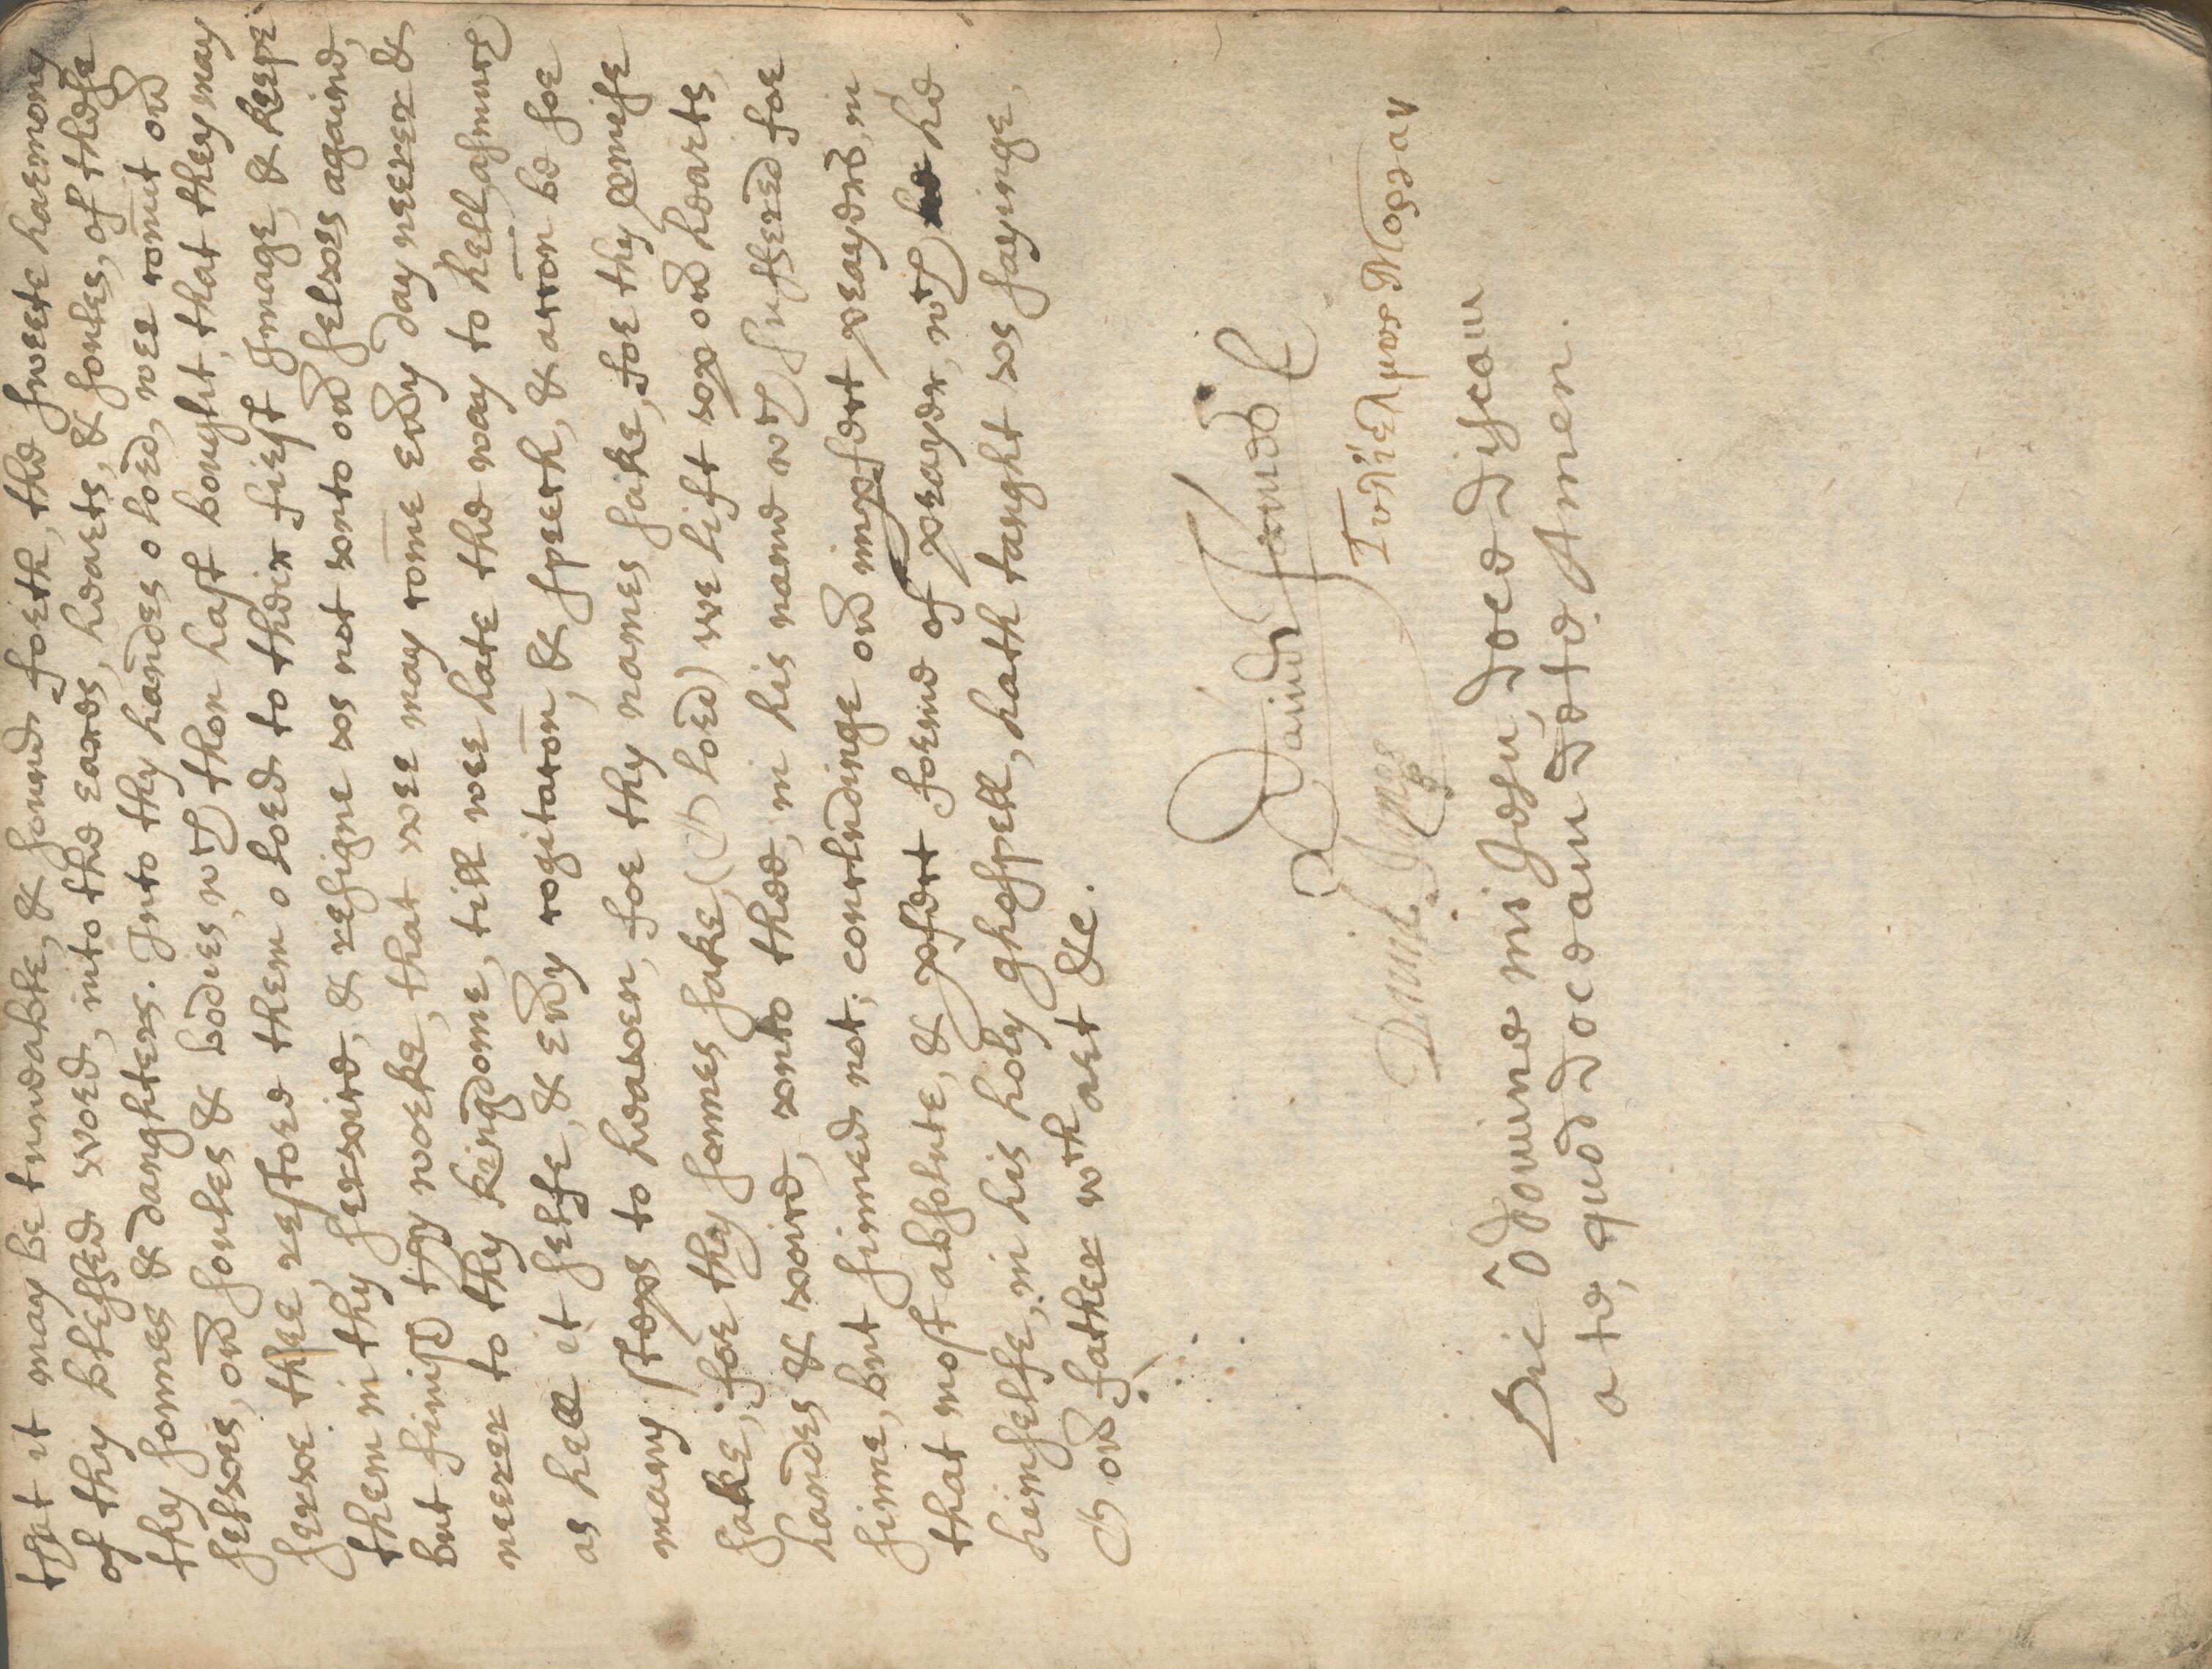 that it may be tuneable, & sound forth, the sweete harmony
of thy blessed word, into the eares, hearts, & soules, of these
thy sonnes & daughters. Into thy handes o lord, wee comit our
selves, our soules & bodies, wch thou hast bought, that they may
serve thee, restore them o lord to their first Image, & keepe
them in thy service, & resigne us not unto our selves againe,
but finish thy worke, that wee may come every day neerer &
neerer to thy kingdome, till wee hate the way to hell, asmuch
as hell it selfe, & every cogitacōn, & speech, & accōn be soe
many steps to heaven, for thy names sake, for thy promise
sake, for thy sonnes sake, (O lord) we lift up our hearts,
handes & voice, unto thee, in his name wch suffered for
sinne, but sinned not; concludinge our imperfect prayers, in
that most absolute, & perfect forme of prayer, wch he
himselfe, in his holy ghospell, hath taught us sayinge,
O our father wth art &c.
David
Γυλιελμος Μοργαν
Dauid
Sic ô domine mi Jesu, doce discam
a te, quod doceam de te. Amen.